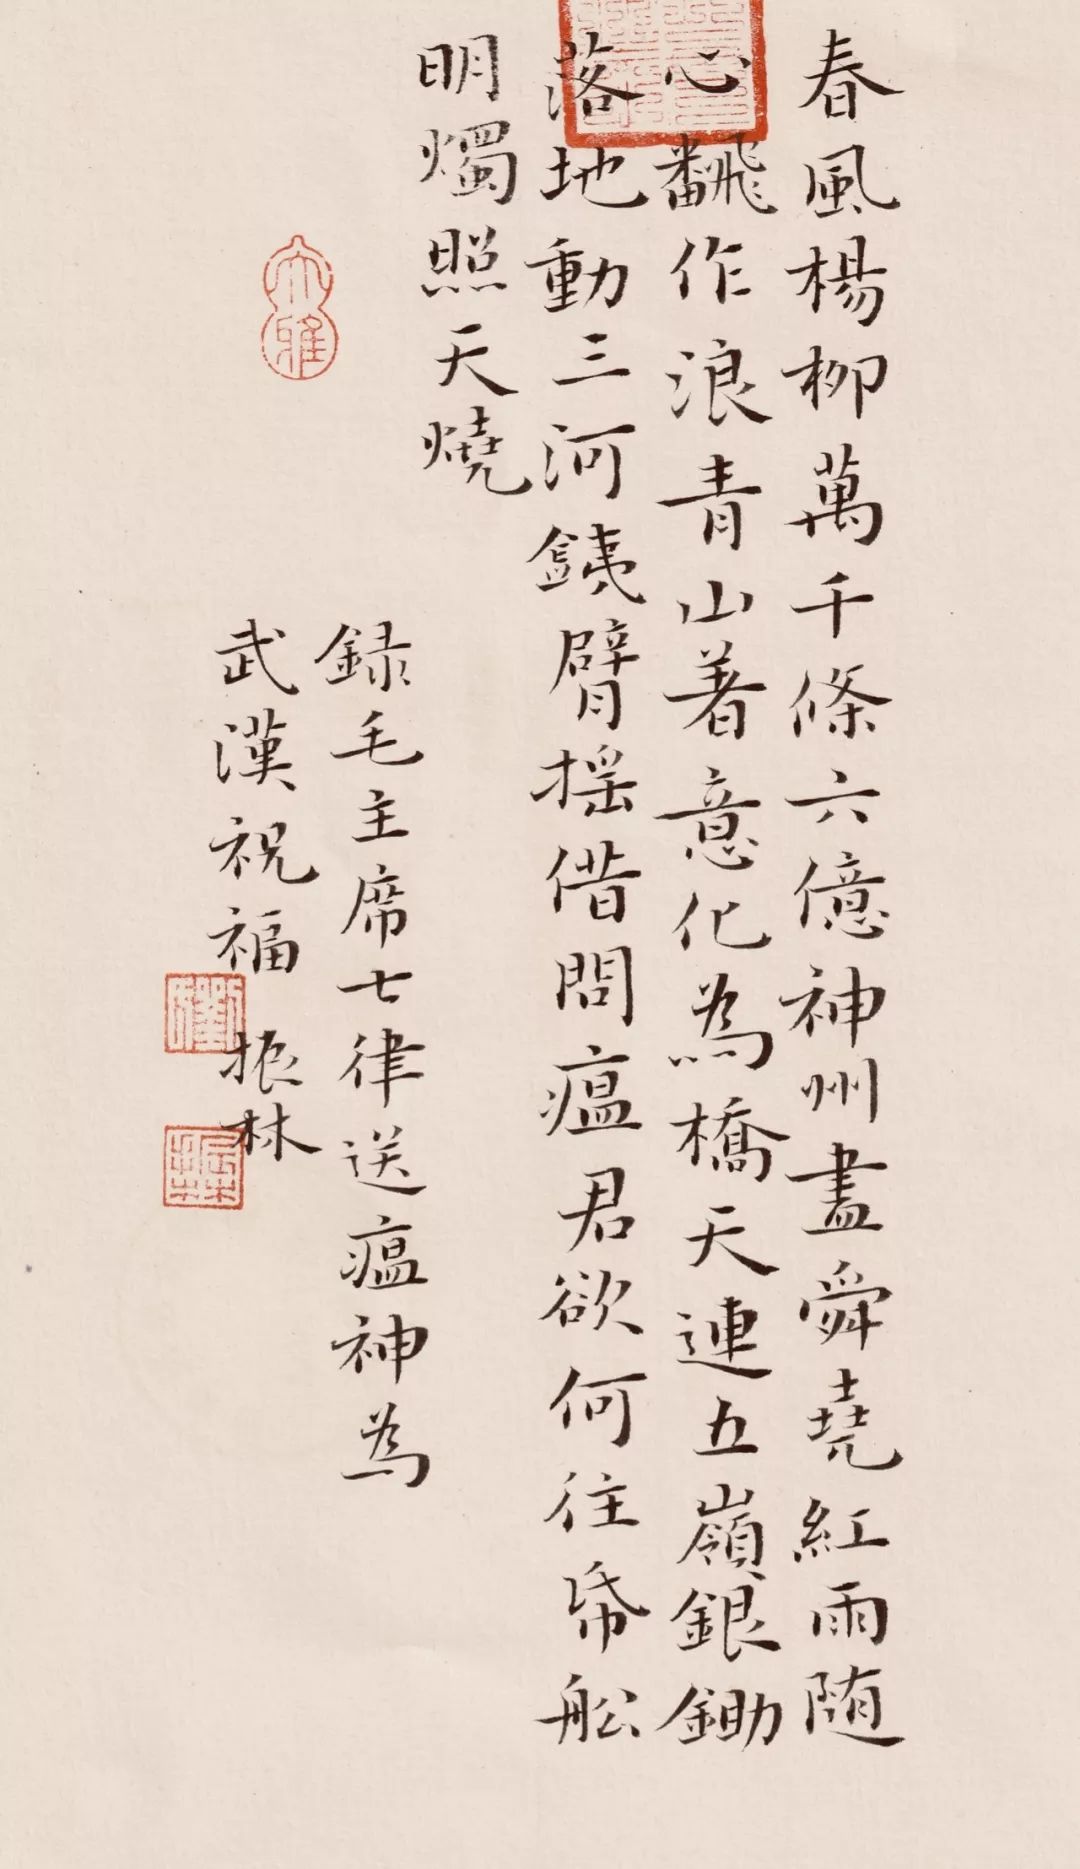 春風楊柳萬千條六億神州盡舜堯紅雨随
心飜作浪青山著意化為橋天連五嶺銀鋤
落地動三河鐵臂摇借問瘟君欲何往帋船
明燭照天燒
録毛主席七律送瘟神為
武漢祝福 振林
大雅